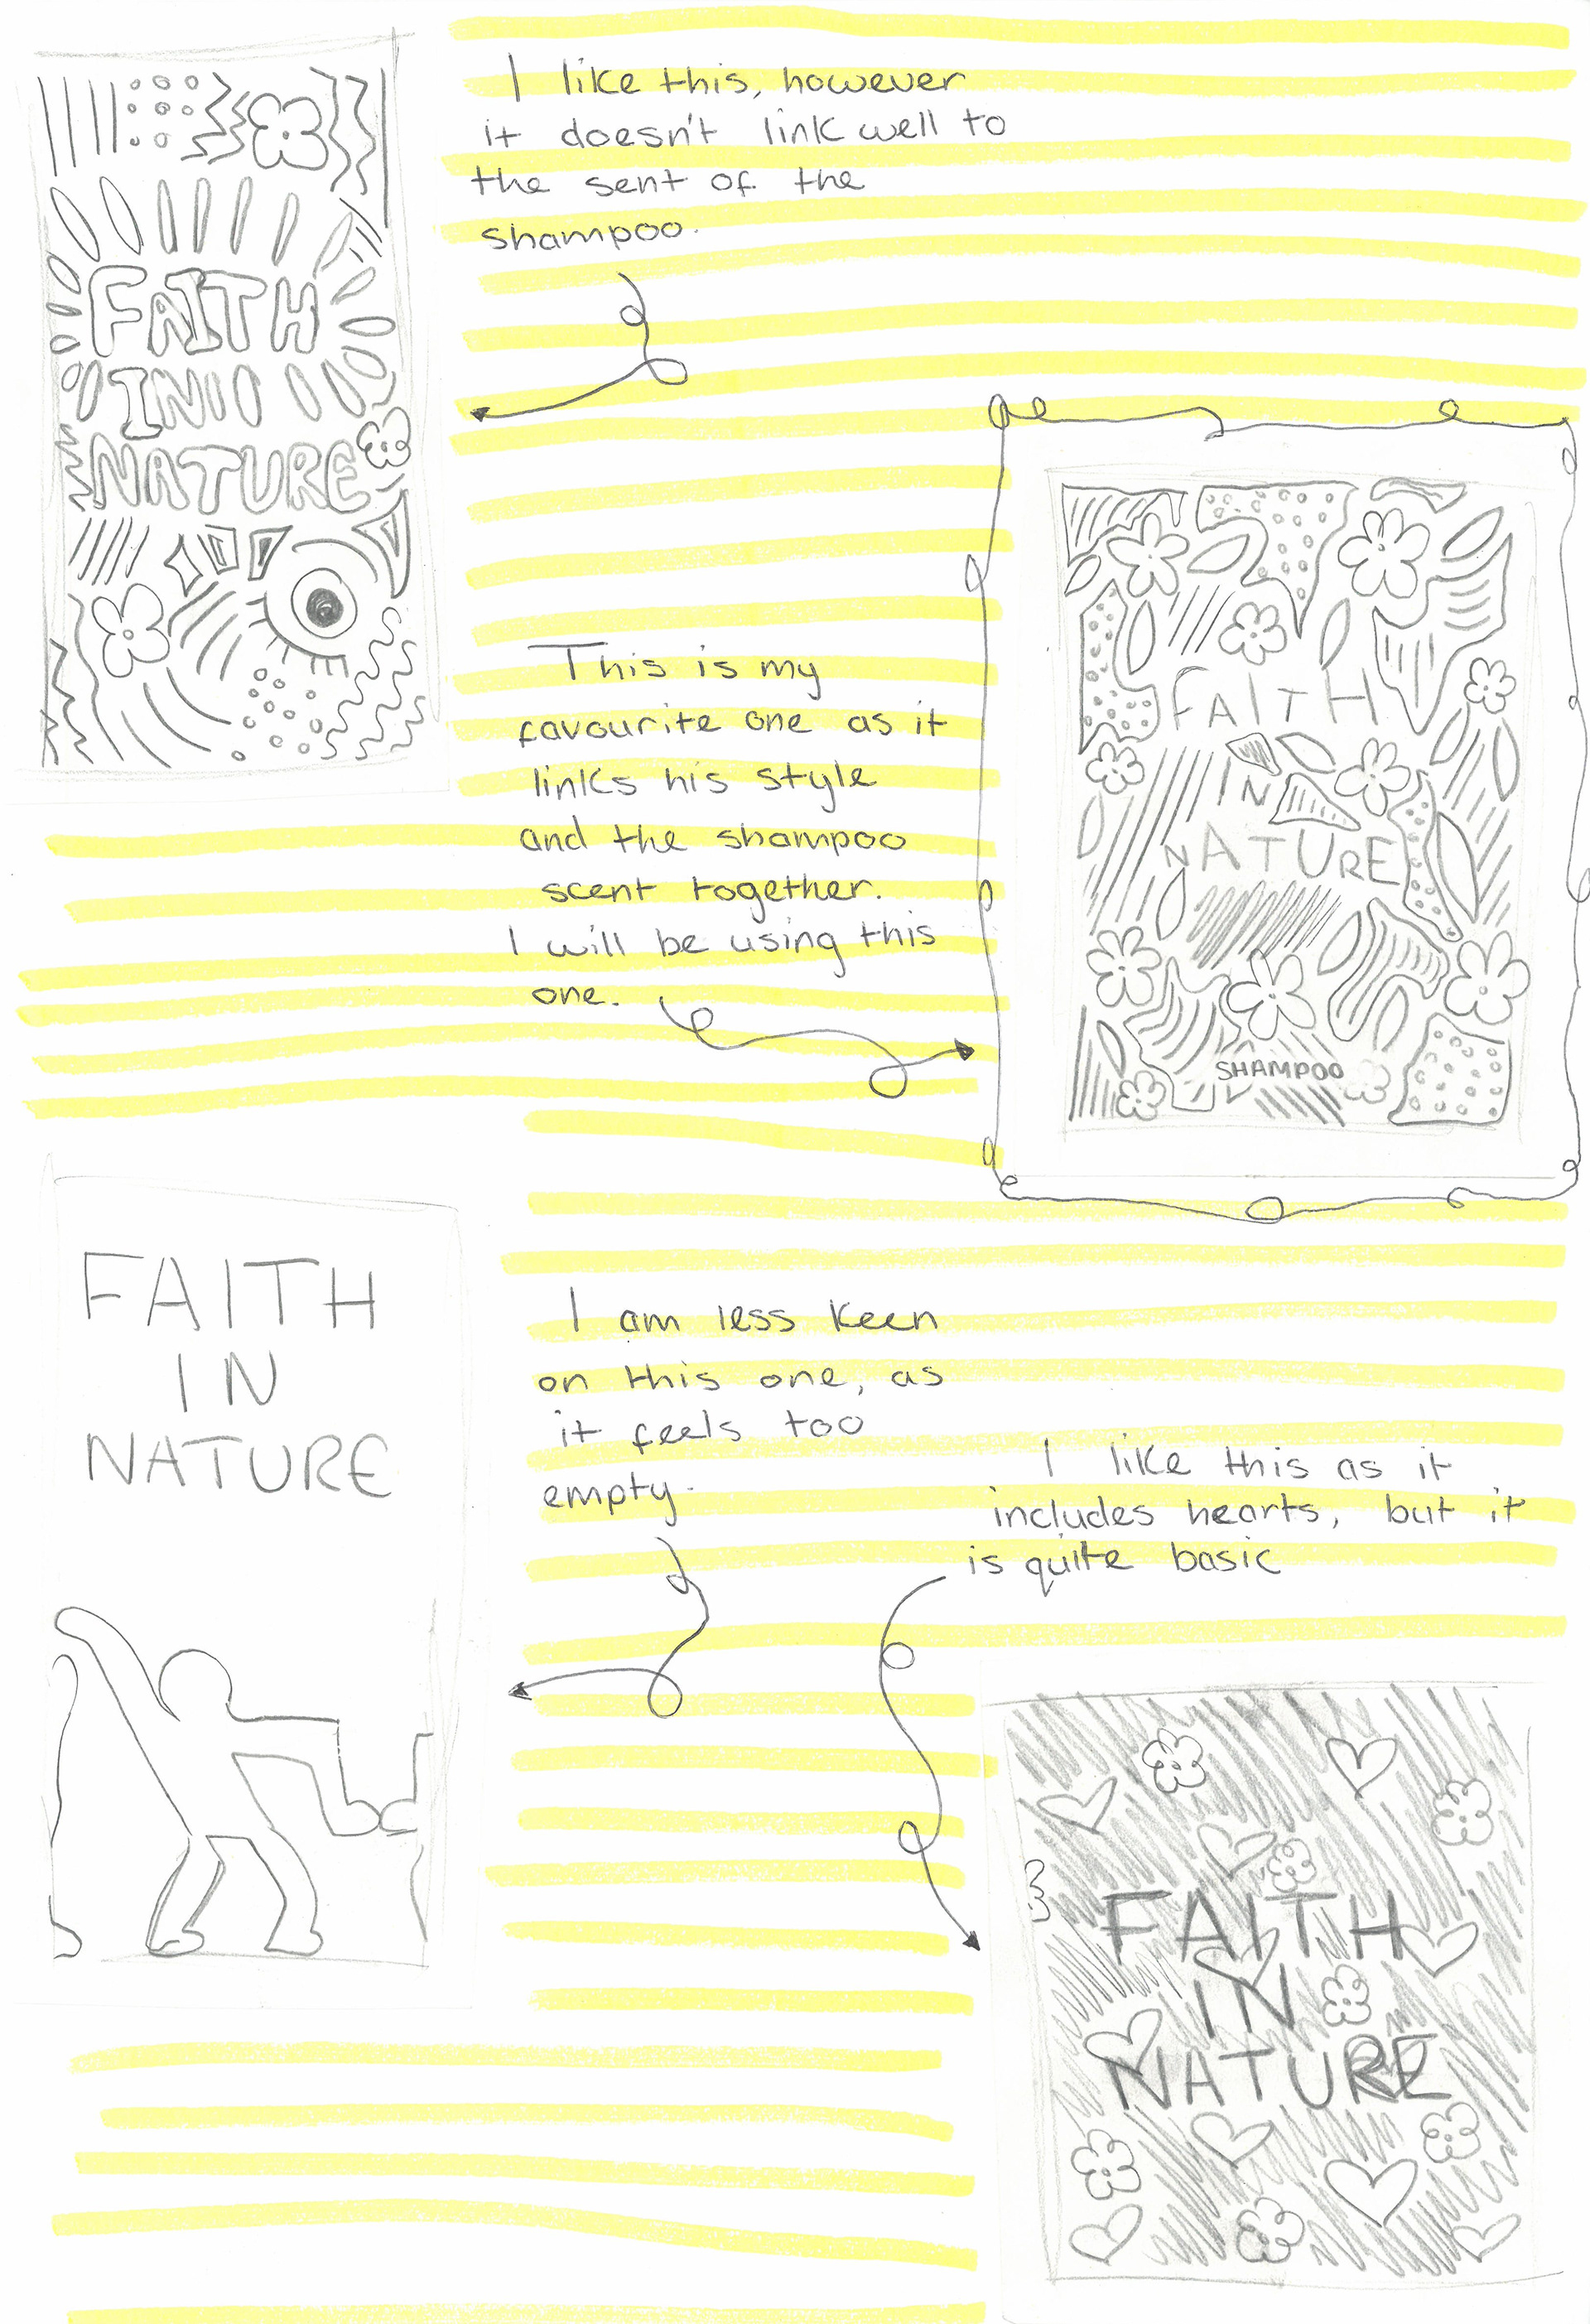 I like this, however
it doesn't link well to
the sent of the
shampoo.
FAITH
IN
NATURE
This is my
favourite one as it
links his style
and the shampoo
scent together.
I will be using this
one.
FAITH
IN
NATURE
SHAMPOO
I am less keen
on this one, as
it feels too
empty.
FAITH
IN
NATURE
I like this as it
includes hearts, but it
is quite basic
FAITH
IN
NATURE